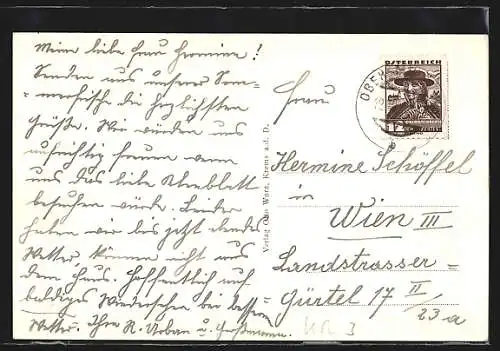 Meine liebe Frau Hermine!
Senden aus unserer Som-
merfrische die herzlichsten
Grüße. Wir würden uns
aufrichtig freuen wenn
uns das liebe
besuchen würde. Leider
haben wir bis jetzt
Wetter, können nicht aus
dem Haus. Hoffentlich auf
baldiges Wiedersehen bei besserem
Wetter. Ihre R. Urban u.
Verlag Otto Würz, Krems a. d. D.
ÖSTERREICH
12
OBER
Frau
Hermine Schöffel
in
Wien III
Landstrasser-
Gürtel 17 II/23a